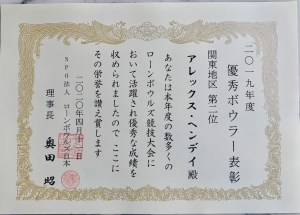 二〇一九年度
優秀ボウラー表彰
関東地区 第二位
アレックス・ヘンデイ殿
あなたは本年度の数多くの
ローンボウルズ競技大会に
おいて活躍され優秀な成績を
収められましたので ここに
その栄誉を讃え賞します
二〇二〇年四月十二日
NPO法人 ローンボウルズ日本
理事長 奥田 昭